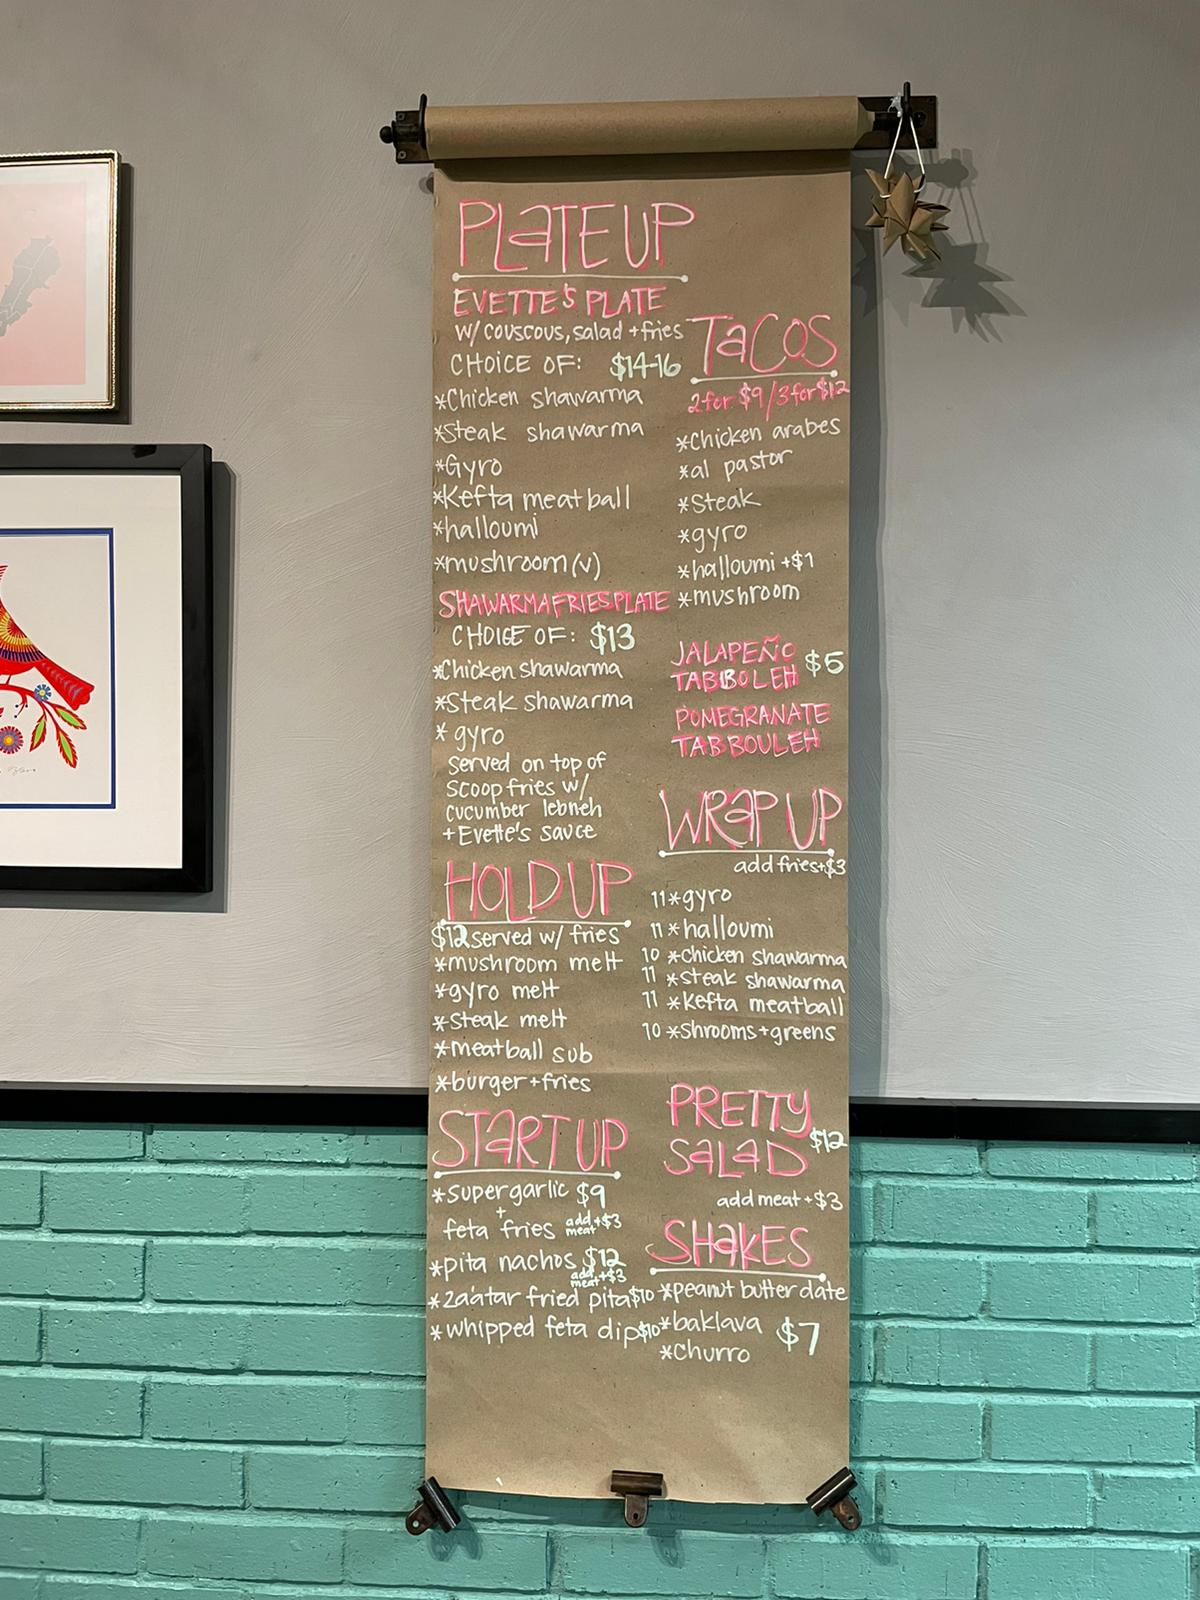 PLATE UP
EVETTE'S PLATE
w/ couscous, salad + fries
CHOICE OF: $14-16
*Chicken shawarma
*Steak shawarma
*Gyro
*Kefta meatball
*halloumi
*mushroom (v)
SHAWARMA FRIES PLATE
CHOICE OF: $13
*Chicken shawarma
*Steak shawarma
* gyro
served on top of
scoop fries w/
cucumber lebneh
+ Evette's sauce
HOLD UP
$12 served w/ fries
*mushroom melt
*gyro melt
*Steak melt
*meatball sub
*burger + fries
START UP
*super garlic $9
+
feta fries add meat +$3
*pita nachos $12
add meat +$3
*za'atar fried pita $10
*whipped feta dip $10
TACOS
2 for $9/3 for $12
*Chicken arabes
*al pastor
*Steak
*gyro
*halloumi +$1
*mushroom
JALAPEÑO $5
TABBOLEH
POMEGRANATE
TABBOULEH
WRAP UP
add fries +$3
11 *gyro
11 *halloumi
10 *Chicken shawarma
11 *Steak shawarma
11 *Kefta meatball
10 *Shrooms + greens
PRETTY
SALAD $12
add meat +$3
SHAKES
*peanut butter date
*baklava $7
*Churro